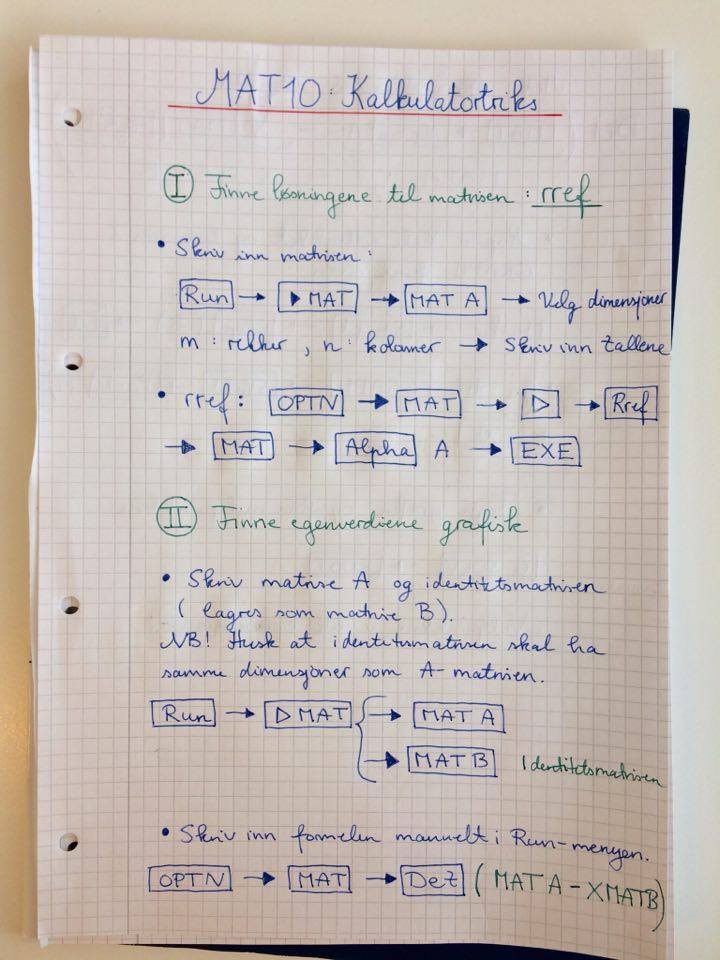 MAT10: Kalkulatortriks
I Finne løsningene til matrisen : rref
• Skriv inn matrisen :
Run → ▶ MAT → MAT A → Velg dimensjoner
m : rekker , n : kolonner → Skriv inn tallene
• rref : OPTN → MAT → ▷ → Rref
→ MAT → Alpha A → EXE
II Finne egenverdiene grafisk
• Skriv matrise A og identitetsmatrisen
( lagres som matrise B ).
NB! Husk at identitetsmatrisen skal ha
samme dimensjoner som A-matrisen.
Run → ▷ MAT → MAT A
→ MAT B Identitetsmatrisen
• Skriv inn formelen manuelt i Run-menyen.
OPTN → MAT → Det ( MAT A - XMATB)